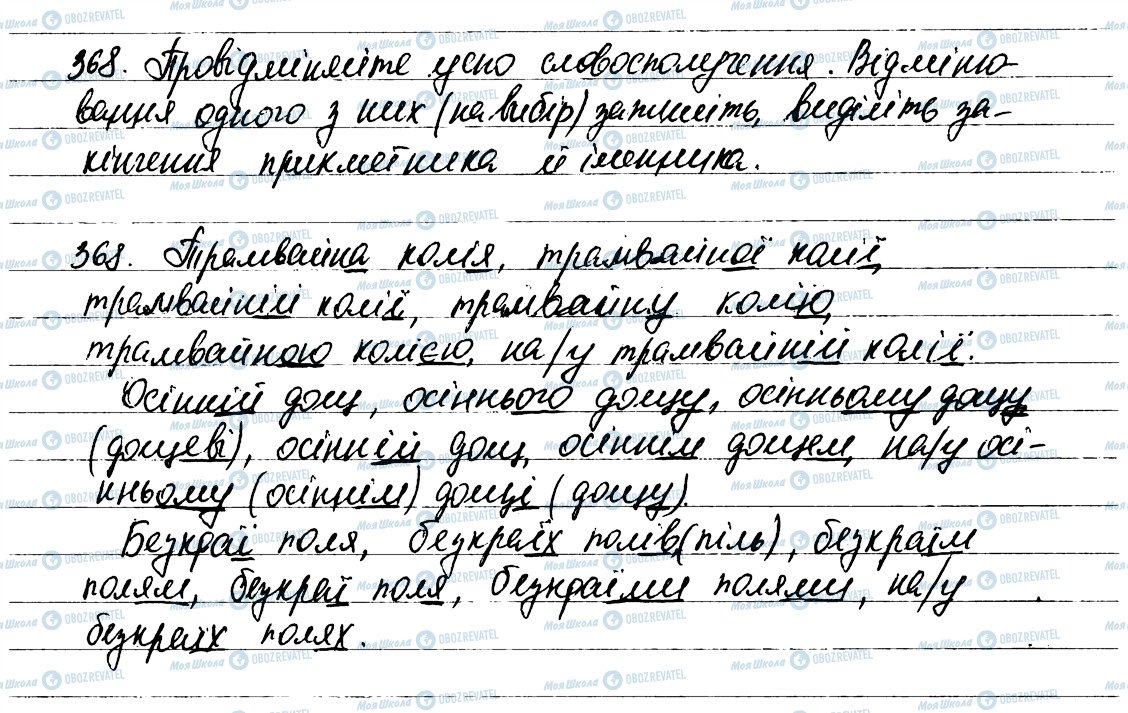 368. Провідміняйте усно словосполучення. Відміню-
вання одного з них (на вибір) запишіть, виділіть за-
кінчення прикметника й іменника.
368. Трамвайна колія, трамвайної колії,
трамвайній колії, трамвайну колію,
трамвайною колією, на/у трамвайній колії.
Осінній дощ, осіннього дощу, осінньому дощу
(дощеві), осінній дощ, осіннім дощем, на/у осі-
нньому (осіннім) дощі (дощу).
Безкраї поля, безкраїх полів(піль), безкраїм
полям, безкраї поля, безкраїми полями, на/у
безкраїх полях.